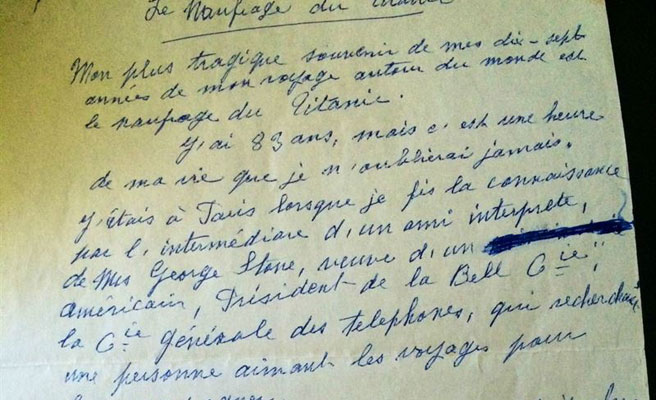 Le Naufrage du Titanic
Mon plus tragique souvenir de mes dix-sept
années de mon voyage autour du monde est
le naufrage du Titanic.
J'ai 83 ans, mais c'est une heure
de ma vie que je n'oublierai jamais.
J'étais à Paris lorsque je fis la connaissance
par l'intermédiaire d'un ami interprète,
de Mrs George Stone, veuve d'un
américain, Président de la Bell Cie,,
la Cie générale des telephones, qui recherchait
une personne aimant les voyages pour